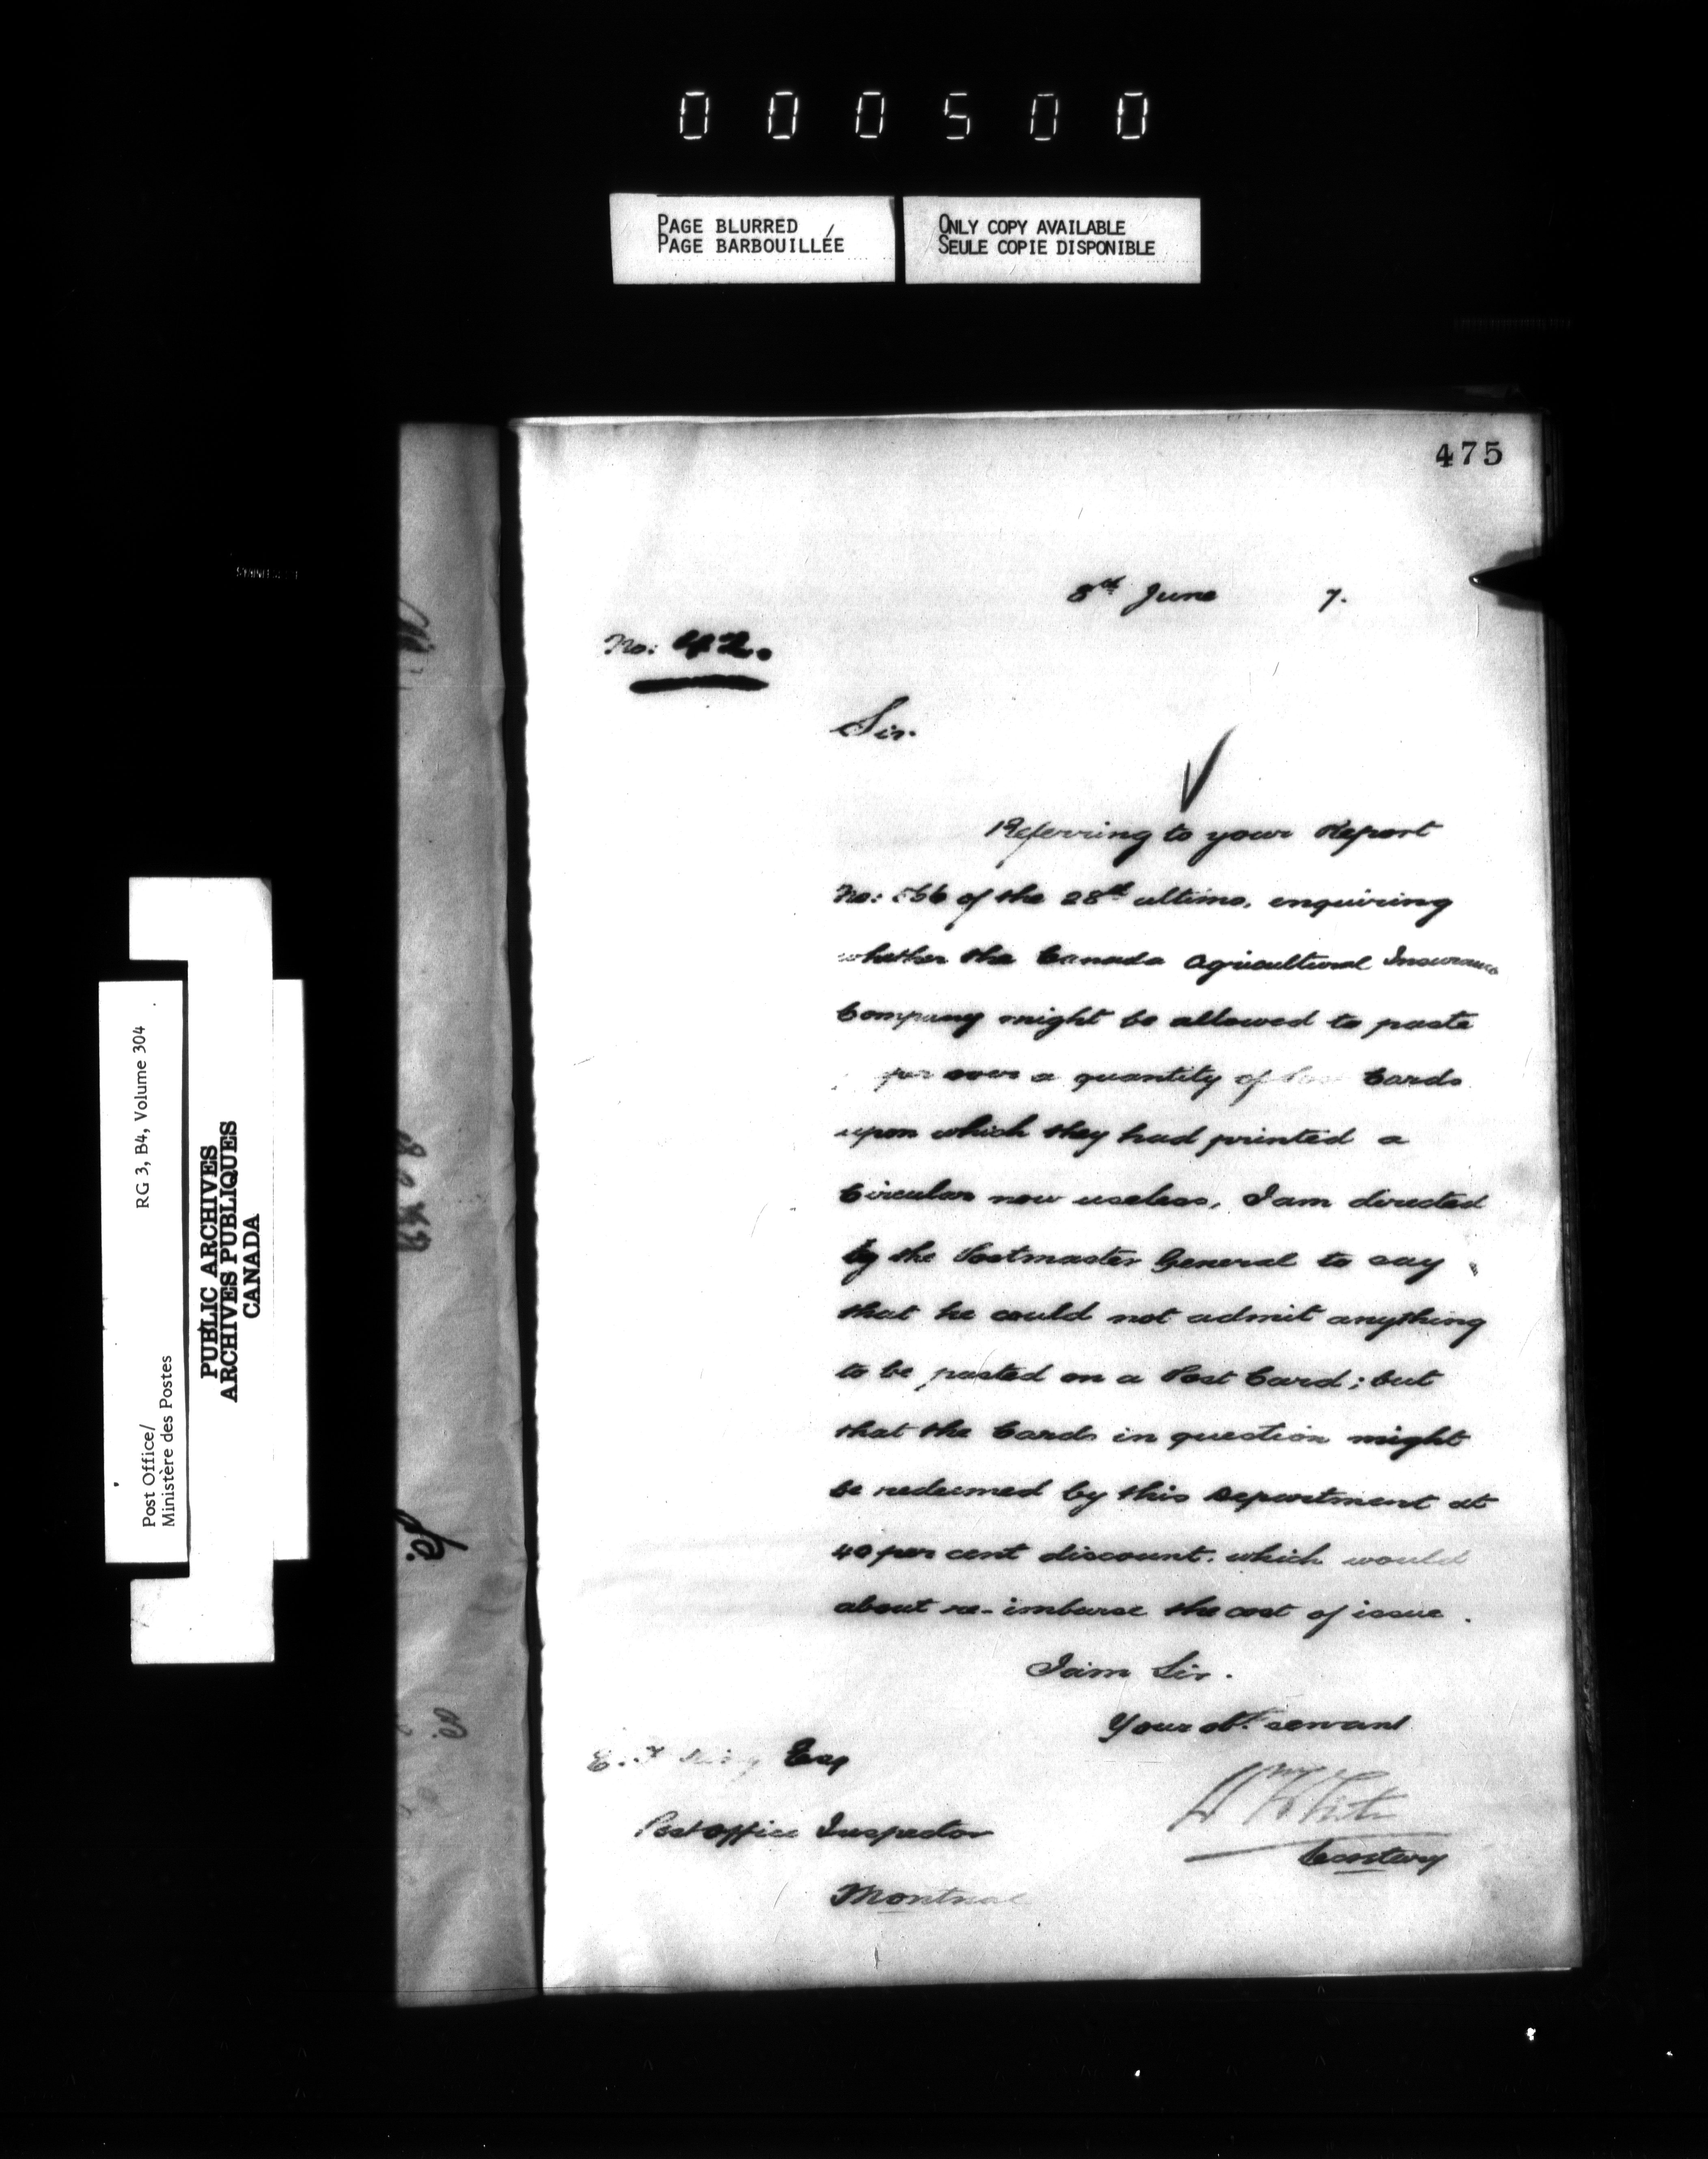 000500
PAGE BLURRED
PAGE BARBOUILLÉE
ONLY COPY AVAILABLE
SEULE COPIE DISPONIBLE
475
8th June 7.
No:
Sir.
Referring to your Report
No: 566 of the 28th ultimo, enquiring
whether the Canada Agricultural Insurance
Company might be allowed to paste
per over a quantity of Post Cards
upon which they had printed a
Circular now useless, I am directed
by the Postmaster General to say
that he could not admit anything
to be pasted on a Post Card; but
that the Cards in question might
be redeemed by this Department at
40 per cent discount. which would
about re-imburse the cost of issue.
I am Sir.
Your obt. servant
Wm White
Secretary
E. F. King Esq
Post Office Inspector
Montreal
Post Office/
Ministère des Postes
RG 3, B4, Volume 304
PUBLIC ARCHIVES
ARCHIVES PUBLIQUES
CANADA